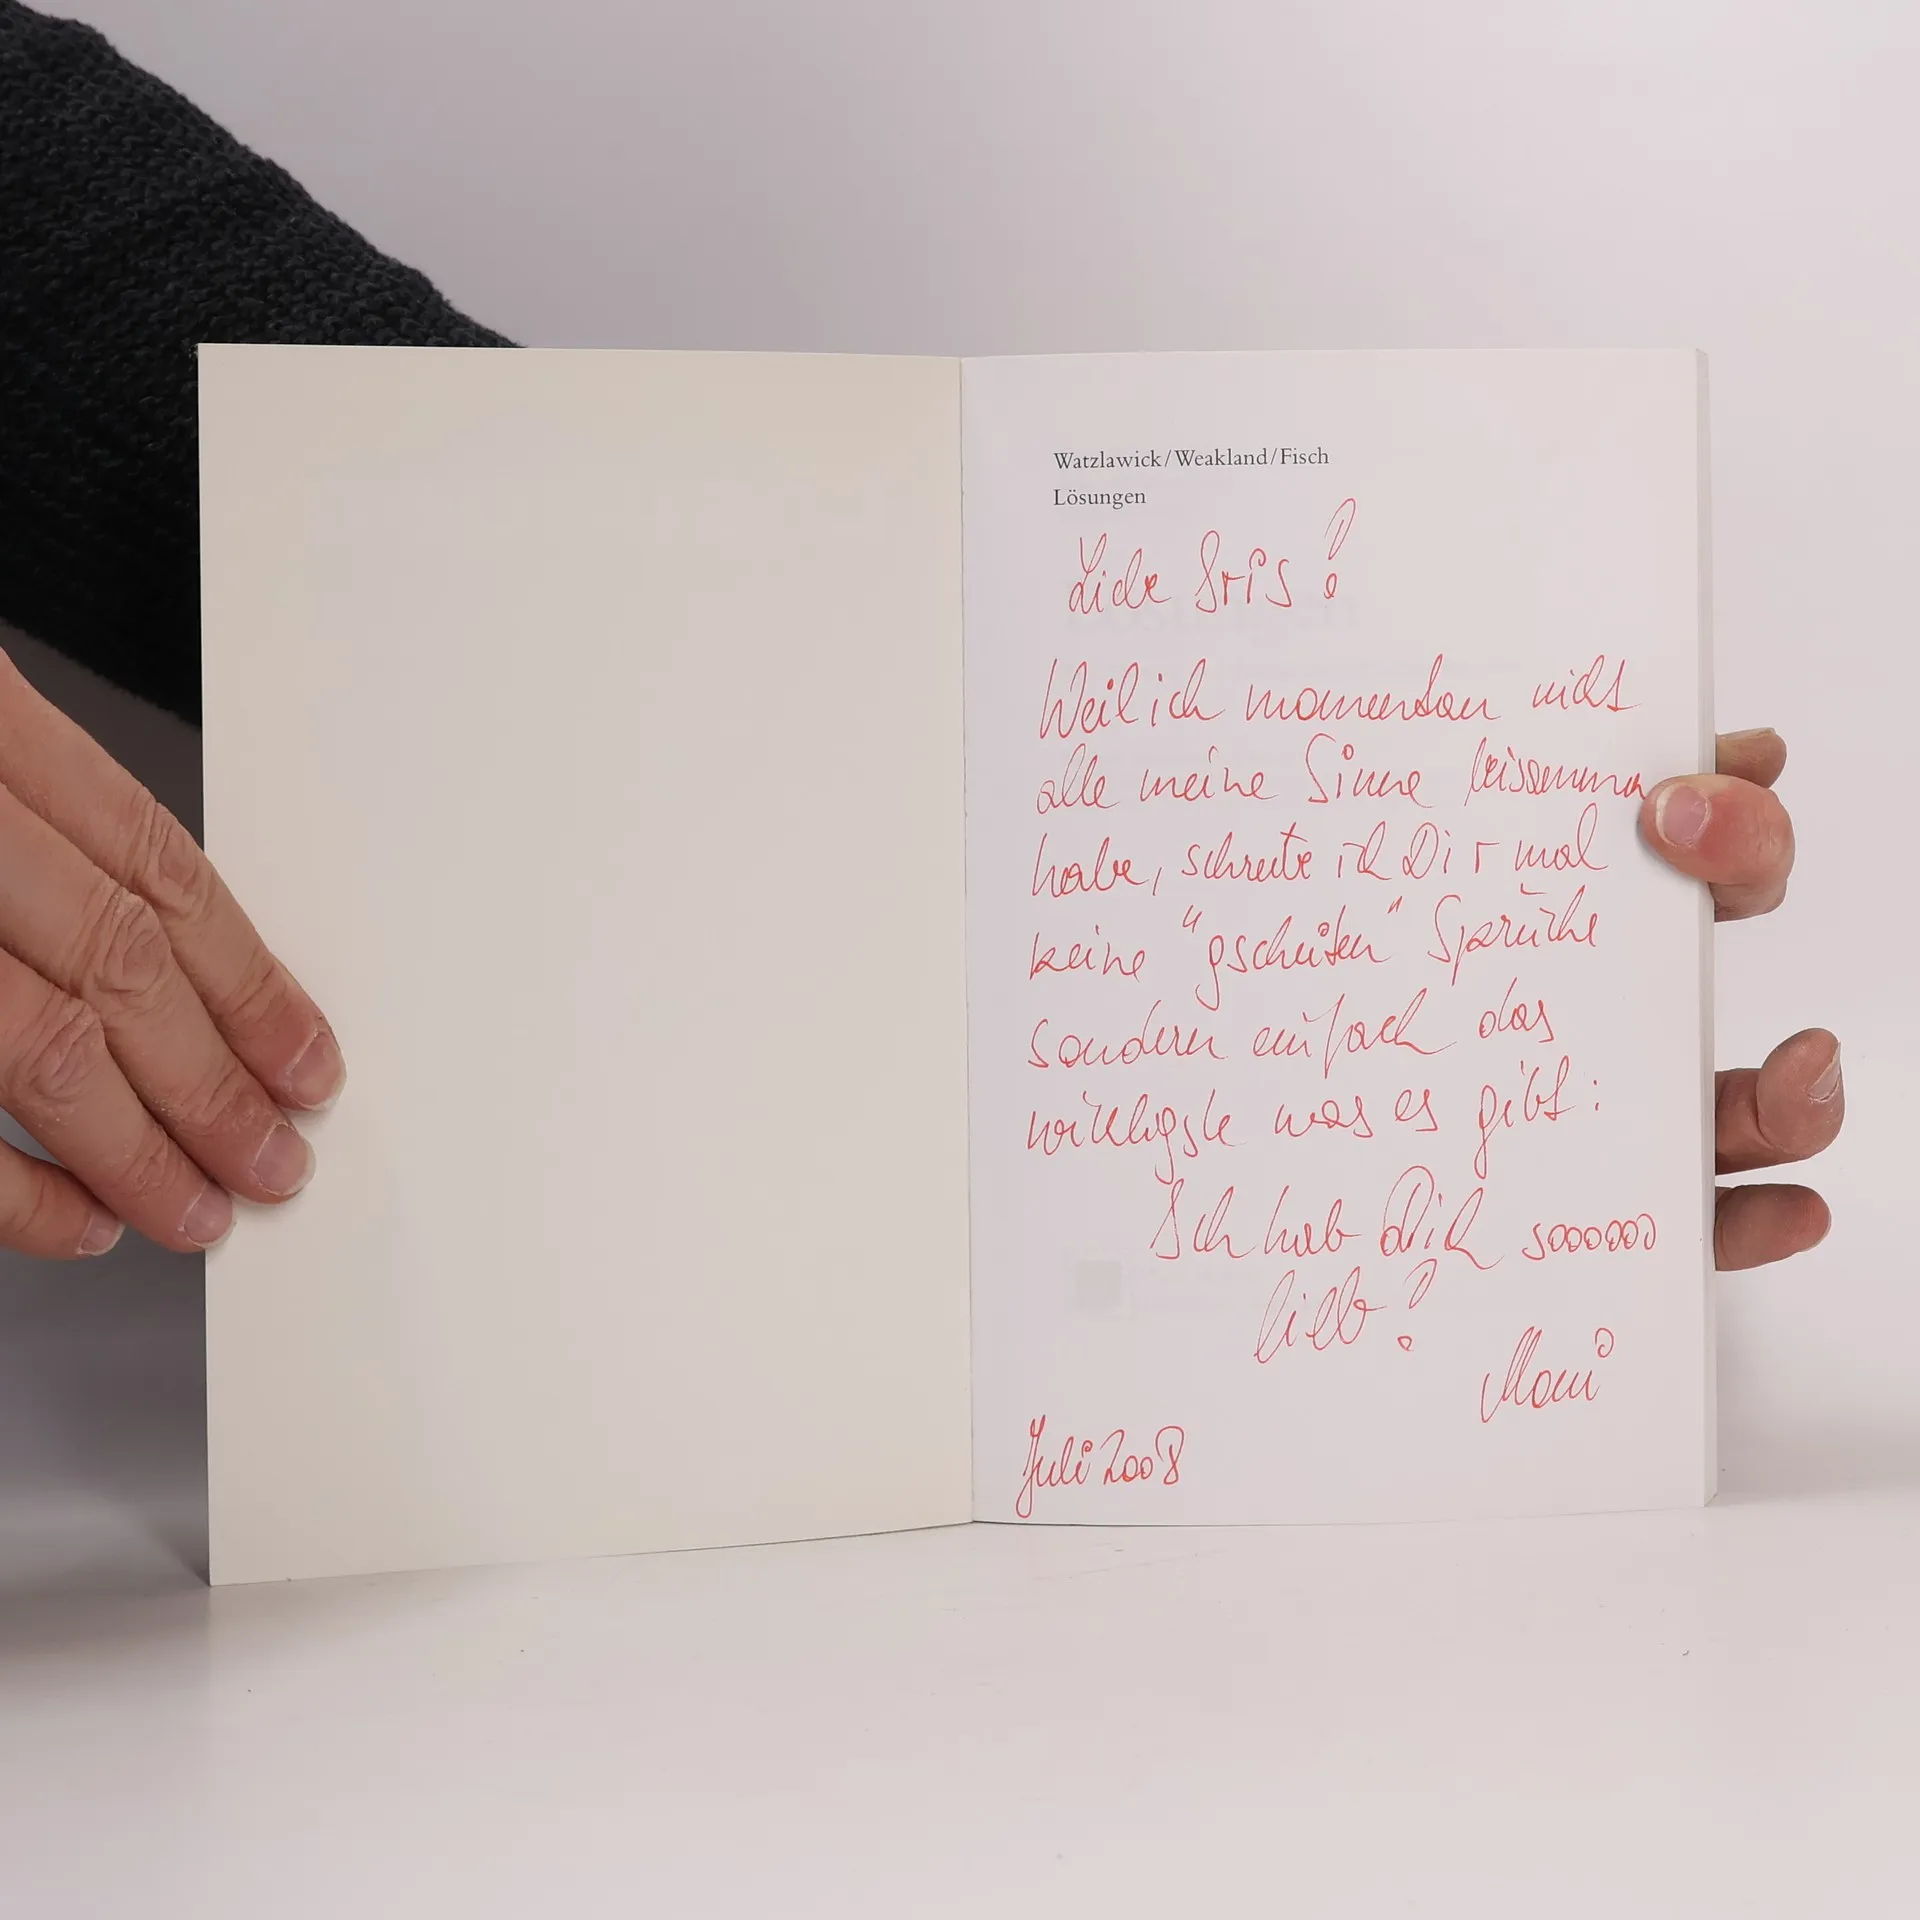 Watzlawick/Weakland/Fisch
Lösungen
Liebe Iris!
Weil ich momentan nicht
alle meine Sinne beisammen
habe, schreibe ich Dir mal
keine "gscheiten" Sprüche
sondern einfach das
wichtigste was es gibt:
Ich hab Dich soooooo
lieb!
Moni
Juli 2008